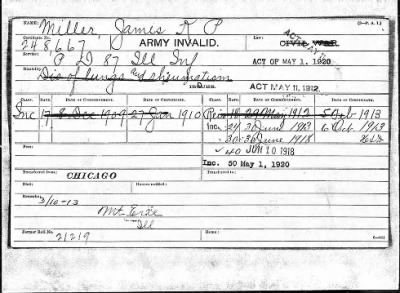 NAME: Miller, James K P (3-P. A. 1.)
Certificate No. 248,667 ARMY INVALID. Law: CIVIL WAR.
ACT MAY 11, 1912
Service: P D 87 Ill Inf ACT OF MAY 1, 1920
Disability: Dis of lungs and rheumatism ACT MAY 11, 1912.
CLASS. RATE. DATE OF COMMENCEMENT. DATE OF CERTIFICATE. CLASS. RATE. DATE OF COMMENCEMENT. DATE OF CERTIFICATE.
Inc 17 8 Dec 1909 27 Jan 1910 5 Oct 1913
Inc. 24 30 June 1913 6 Oct. 1913
30-36 June 1918
40 JUN 10 1918
Inc. 50 May 1, 1920
CHICAGO
Died:
Remarks: 3/16-13
Mt. Erie
Ill
Former Roll No. 21219